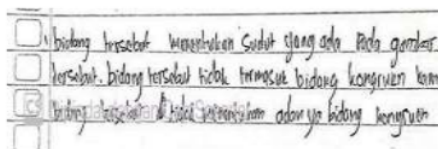 bidang tersebut menentukan sudut yang ada pada gambar
tersebut. bidang tersebut tidak termasuk bidang kongruen
bidang tersebut tidak adanya bidang kongruen